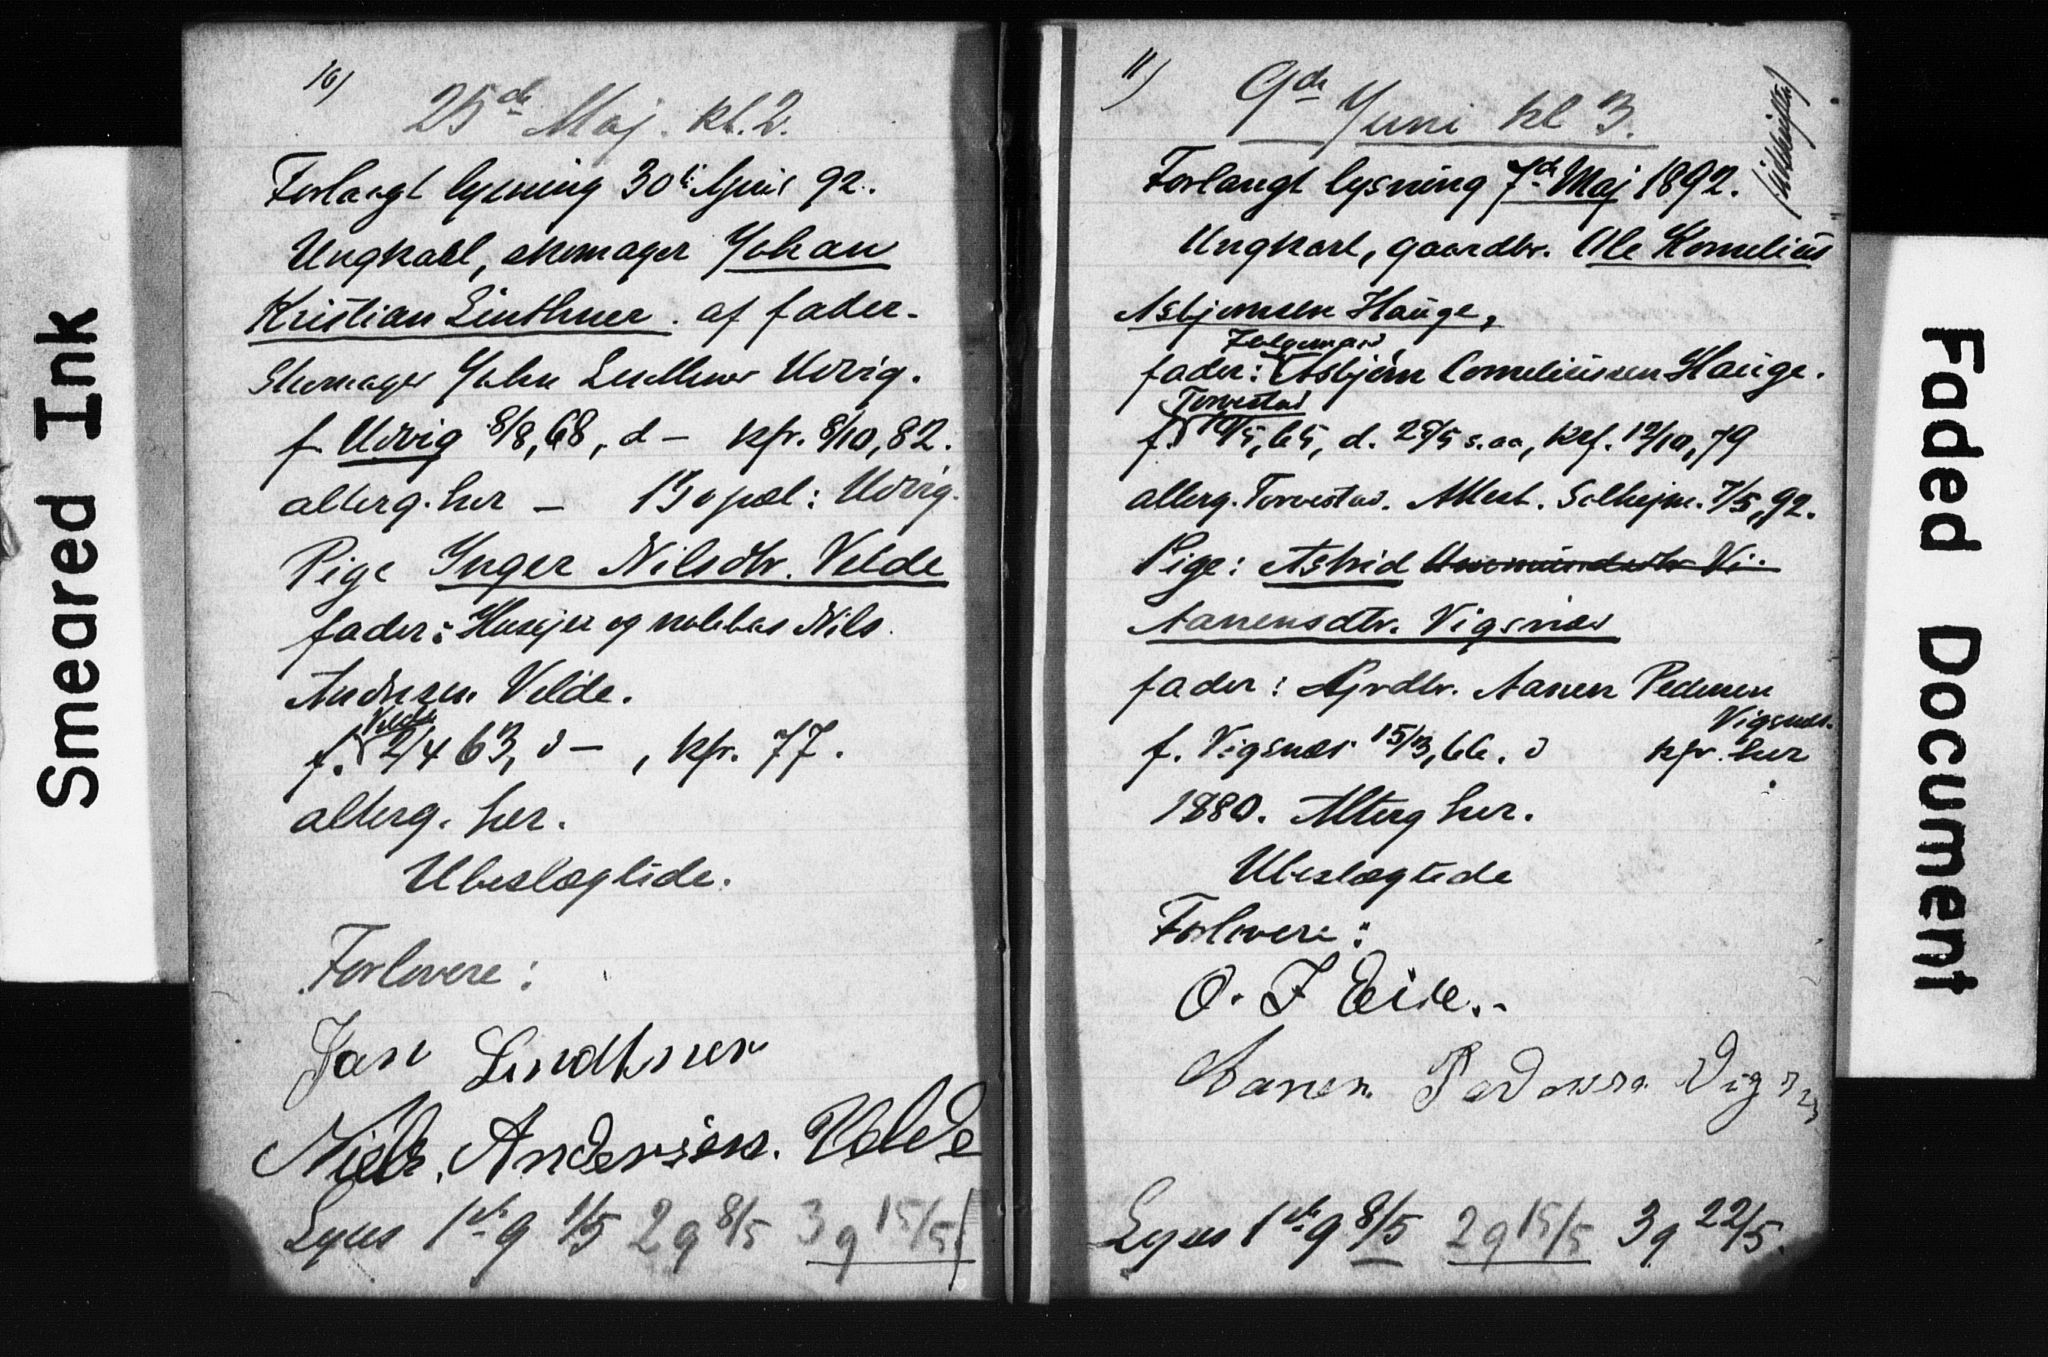 Smeared Ink
10)
25de Maj. kl. 2.
Forlangt lysning 30te April 92.
Ungkarl, skomager Johan
Kristian Linthner. af fader-
Skomager John Lindthner Udvig.
f. Udvig 8/8, 68, d - kfr. 8/10, 82.
alterg. her - Udvig.
Pige Inger Nilsdtr. Velde
fader: Husejer og notebas Nils
Andersen Velde.
Velde
f. 2/4 63, d - , kfr. 77.
alterg. her.
Ubeslægtede.
Forlovere:
Jan Lindthner
Niels. Andersen. Velde
Lyses 1ste g 1/5 2 g 8/5 3 g 15/5
11)
9de Juni kl 3.
Forlangt lysning 7de Maj 1892.
Ungkarl, gaardbr. Ole Kornelius
Asbjørnsen Hauge,
Følgemand
fader: Asbjørn Corneliussen Hauge.
Torvestad
f. /5, 65, d. 25/5 s. aa, kof. 12/10, 79
alterg. Torvestad. Attest. Solhejm. 7/5, 92.
Pige: Astrid Aasmundsdtr Vi-
Aanensdtr. Vigsnæs
fader: Grdbr. Aanen Pedersen
Vigsnæs.
f. Vigsnæs 15/3, 66. d kfr. her
1880. Alterg her.
Ubeslægtede
Forlovere:
O. J Eide.
Aanen Pedersen Vigsnæs
Lyses 1ste g 8/5 2 g 15/5 3 g 22/5.
Faded Document